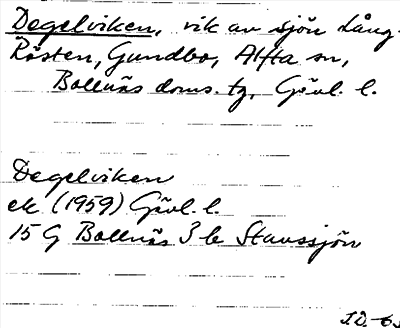 Degelviken, vik av sjön Lång-
Rösten, Gundbo, Alfta sn,
Bollnäs doms. tg, Gävl. l.
Degelviken
ek (1959) Gävl. l.
15 G Bollnäs 3 b Stavssjön